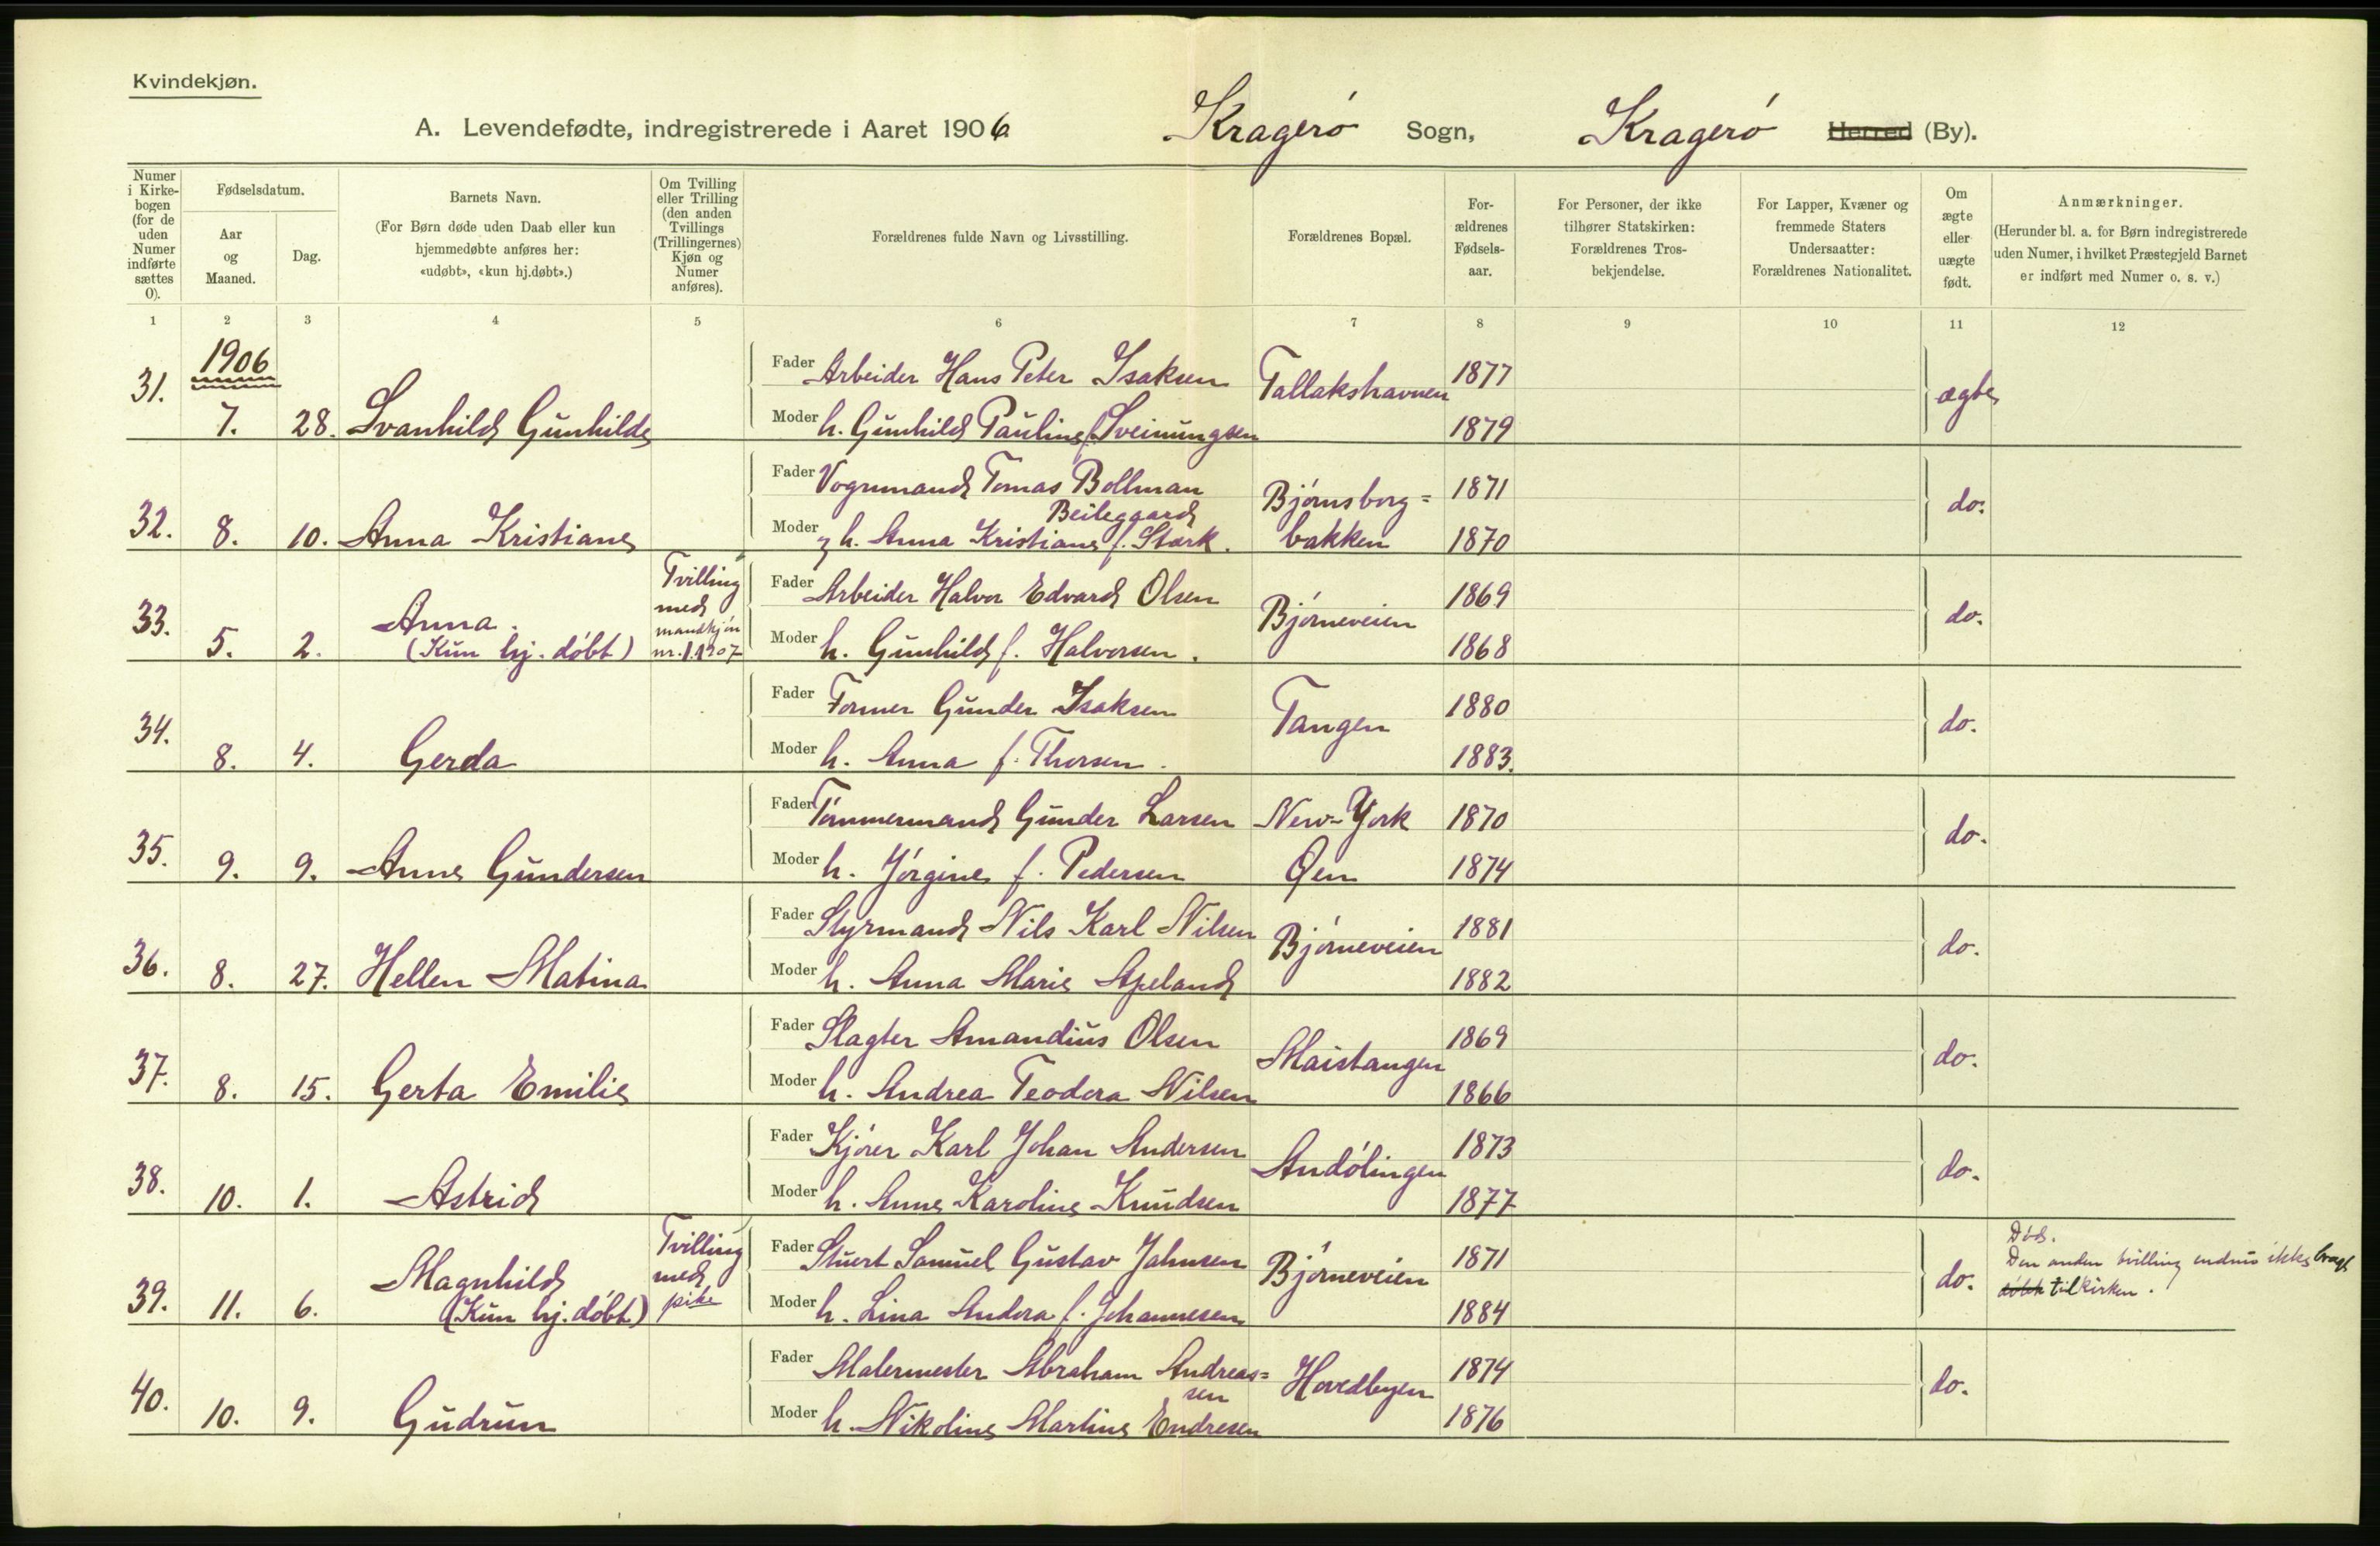 Kvindekjøn.
A. Levendefødte, indregistrerede i Aaret 1906 Kragerø Sogn, Kragerø Herred (By).
Numer i Kirkebogen (for de uden Numer indførte sættes 0).
Fødselsdatum.
Aar og Maaned.
Dag.
Barnets Navn.
(For Børn døde uden Daab eller kun hjemmedøbte anføres her: «udøbt», «kun hj.døbt».)
Om Tvilling eller Trilling (den anden Tvillings (Trillingernes) Kjøn og Numer anføres).
Forældrenes fulde Navn og Livsstilling.
Forældrenes Bopæl.
Forældrenes Fødselsaar.
For Personer, der ikke tilhører Statskirken: Forældrenes Trosbekjendelse.
For Lapper, Kvæner og fremmede Staters Undersaatter: Forældrenes Nationalitet.
Om ægte eller uægte født.
Anmærkninger.
(Herunder bl. a. for Børn indregistrerede uden Numer, i hvilket Præstegjeld Barnet er indført med Numer o. s. v.)
1 2 3 4 5 6 7 8 9 10 11 12
1906
31. 7. 28. Svanhild Gunhilde
Fader Arbeider Hans Peter Isaksen Tallakshavnen 1877 ægte
Moder h. Gunhild Pauline f. Sveinungsen 1879
32. 8. 10. Anna Kristiane
Fader Vognmand Tomas Bollman Beilegaard Bjørnsborg= 1871 do.
Moder h. Anna Kristiane f. Stærk. bakken 1870
33. 5. 2. Anna.
(Kun hj. døbt)
Tvilling med mandkjøn nr. 1.1907
Fader Arbeider Halvor Edvard Olsen Bjørneveien 1869 do.
Moder h. Gunhild f. Halvorsen. 1868
34. 8. 4. Gerda
Fader Former Gunder Isaksen Tangen 1880 do.
Moder h. Anna f. Thorsen. 1883.
35. 9. 9. Anne Gundersen
Fader Tømmermand Gunder Larsen New-York 1870 do.
Moder h. Jørgine f. Pedersen Øen 1874
36. 8. 27. Hellen Matina
Fader Styrmand Nils Karl Nilsen Bjørneveien 1881 do.
Moder h. Anna Marie Apeland 1882
37. 8. 15. Gerta Emilie
Fader Slagter Amandius Olsen Maistangen 1869 do.
Moder h. Andrea Teodora Nilsen 1866
38. 10. 1. Astrid
Fader Kjører Karl Johan Andersen Andølingen 1873 do.
Moder h. Anne Karoline Knudsen 1877
39. 11. 6. Magnhild
(Kun hj. døbt)
Tvilling med pike
Fader Stuert Samuel Gustav Jahnsen Bjørneveien 1871 do.
Moder h. Lina Andora f. Johannesen 1884
Død.
Den anden tvilling endnu ikke bragt
til kirken.
40. 10. 9. Gudrun
Fader Malermester Abraham Andreas=sen Hovedbyen 1874 do.
Moder h. Nikoline Martine Endresen 1876